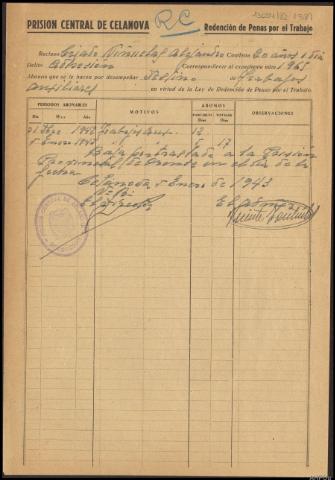 PRISION CENTRAL DE CELANOVA
RC
Redención de Penas por el Trabajo
Recluso Criado Viñuelas Alejandro Condena 20 años 1 día
Delito Adhesión Correspondiente al expediente núm. 1965
Abonos que se le hacen por desempeñar Destino de Trabajos
auxiliares en virtud de la Ley de Redención de Penas por el Trabajo.
PERIODOS ABONABLES
MOTIVOS
ABONOS
OBSERVACIONES
Día Mes Año
PARCIALES DIAS
TOTALES DIAS
31 1942 Trabajos aux. 12
5 Enero 1943 5 17
Baja por traslado a la Prisión
Provincial de en el día de la
fecha
Celanova 5 Enero de 1943
El Director